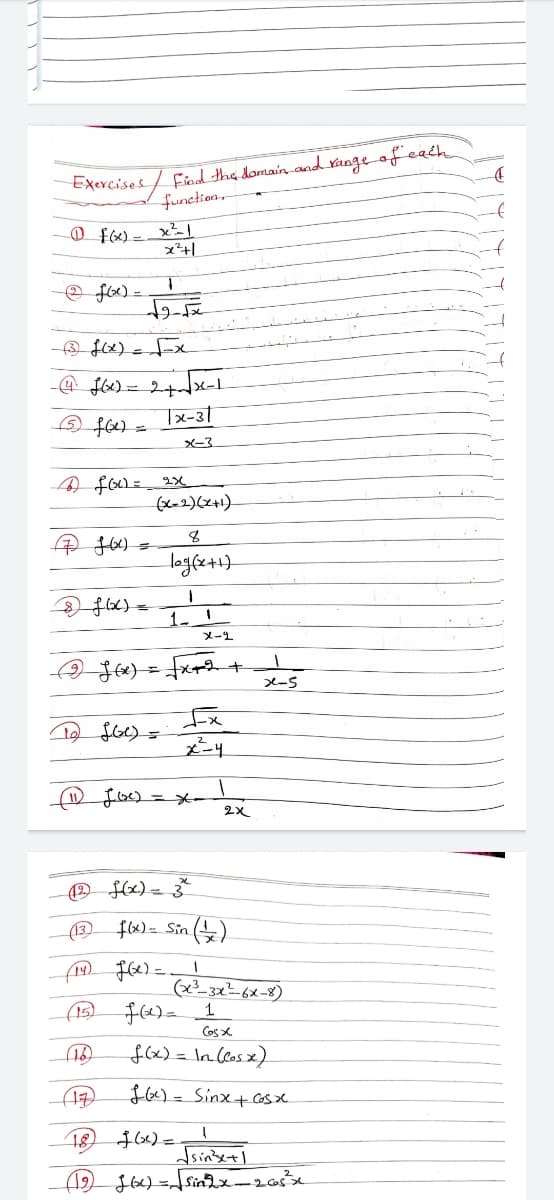 Exercises / Find the domain and range of each
function.
① f(x) = x²-1 / x²+1
② f(x) = 1 / √(9-√x)
③ f(x) = √-x
④ f(x) = 2+√x-1
⑤ f(x) = |x-3| / x-3
⑥ f(x) = 2x / (x-2)(x+1)
⑦ f(x) = 8 / log(x+1)
⑧ f(x) = 1 / (1 - 1/(x-2))
⑨ f(x) = √x+2 + 1 / x-5
⑩ f(x) = √-x / x²-4
⑪ f(x) = x - 1 / 2x
⑫ f(x) = 3ˣ
⑬ f(x) = Sin (1/x)
⑭ f(x) = 1 / (x³-3x²-6x-8)
⑮ f(x) = 1 / Cosx
⑯ f(x) = ln (Cos x)
⑰ f(x) = Sinx + Cosx
⑱ f(x) = 1 / √sin²x+1
⑲ f(x) = √sin2x - 2cos²x